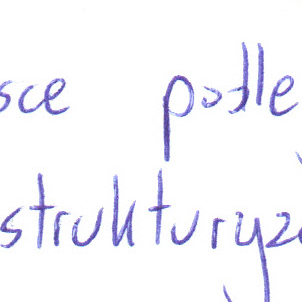 sce podle
strukturyza